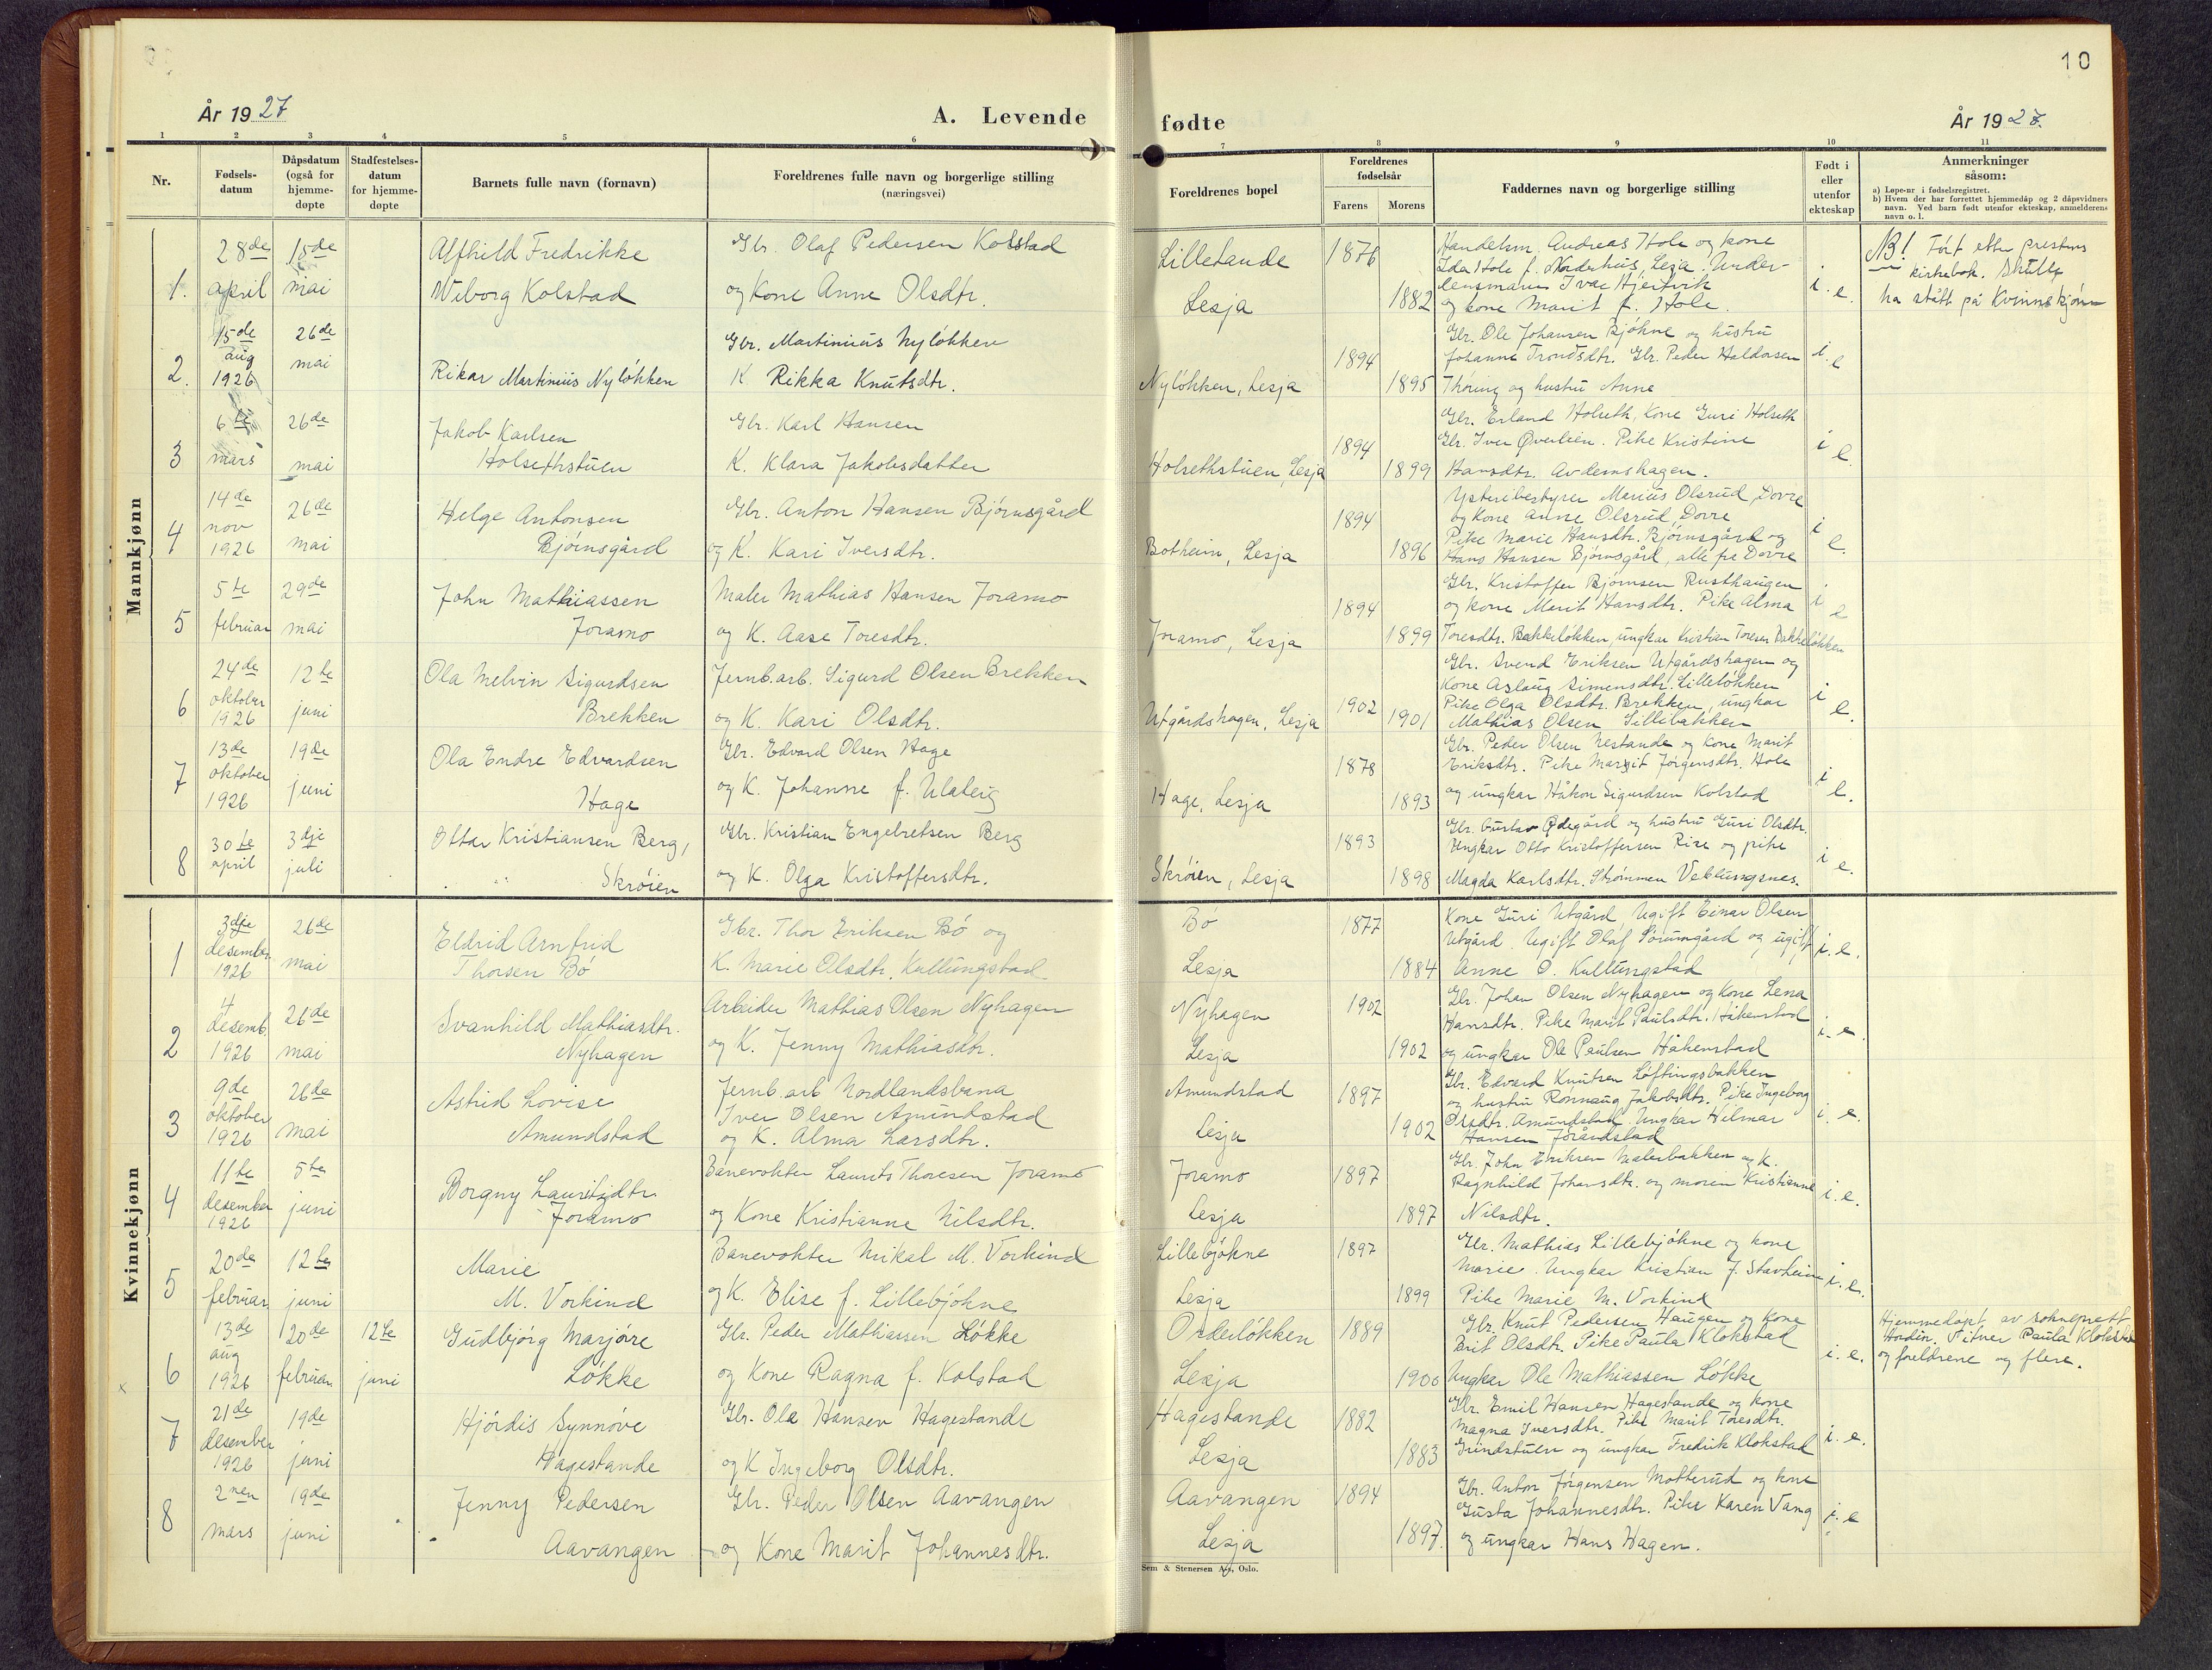 10
År 1927
A. Levende
fødte
År 1927.
1 2 3 4 5 6 7 8 9 10 11
Nr.
Fødsels-
datum
Dåpsdatum
(også for
hjemme-
døpte
Stadfestelses-
datum
for hjemme-
døpte
Barnets fulle navn (fornavn)
Foreldrenes fulle navn og borgerlige stilling
(næringsvei)
Foreldrenes bopel
Foreldrenes
fødselsår
Farens Morens
Faddernes navn og borgerlige stilling
Født i
eller
utenfor
ekteskap
Anmerkninger
såsom:
a) Løpe-nr i fødselsregistret.
b) Hvem der har forrettet hjemmedåp og 2 dåpsvidners
navn. Ved barn født utenfor ekteskap, anmelderens
navn o. l.
Mannkjønn
1. 28de april 15de mai
Alfhild Fredrikke
Weborg Kolstad
Gbr. Olaf Pedersen Kolstad
og Kone Anne Olsdtr.
Lillestande
Lesja
1876
1882
Handelsm. Andreas Hole og kone
Ida Hole f. Norderhus, Lesja. Under-
lensmann Ivar Hjertvik
og kone Marit f. Hole.
i. e.
NB! Ført etter prestens
kirkebok. Skulle
ha stått på Kvinnekjønn
2. 15de aug 1926 26de mai
Rikar Martinius Nyløkken
Gbr. Martinius Nyløkken
K Rikka Knutsdtr.
Nyløkken, Lesja
1894
1895
Gbr. Ole Johansen Bjøkne og hustru
Johanne Trondsdtr. Gbr. Peder Haldorsen
Thøring og hustru Anne
i. e
3 6te mars 26de mai
Jakob Karlsen
Holsethstuen
Gbr. Karl Hansen
K. Klara Jakobsdatter
Holsethstuen, Lesja
1894
1899
Gbr. Erland Holseth, Kone Guri Holseth
Gbr. Iver Øverlien. Pike Kristine
Hansdtr. Avdemshagen.
i e.
4 14de nov 1926 26de mai
Helge Antonsen
Bjørnsgård
Gbr. Anton Hansen Bjørnsgård
og K. Kari Iversdtr.
Botheim, Lesja
1894
1896
Ysteribestyrer Marius Olsrud, Dovre
og kone Anne Olsrud, Dovre
Pike Marie Hansdtr. Bjørnsgård og
Hans Hansen Bjørnsgård, alle fra Dovre
i e.
5 5te februar 29de mai
John Mathiassen
Joramo
Maler Mathias Hansen Joramo
og K. Aase Toresdtr.
Joramo, Lesja
1894
1899
Gbr. Kristoffer Bjørnsen Rusthaugen
og kone Marit Hansdtr. Pike Alma
Toresdtr. Bakkeløkken, ungkar Kristian Toresen Bakkeløkken
i e
6 24de oktober 1926 12te juni
Ola Melvin Sigurdsen
Brekken
Jernb.arb. Sigurd Olsen Brekken
og K. Kari Olsdtr.
Utgårdshagen, Lesja
1902
1901
Gbr. Svend Eriksen Utgårdshagen og
Kone Aslaug Simensdtr. Lilleløkken
Pike Olga Olsdtr. Brekken, ungkar
Mathias Olsen Lillebakken
i e.
7 13de oktober 1926 19de juni
Ola Endre Edvardsen
Hage
Gbr. Edvard Olsen Hage
og K. Johanne f. Ulateig
Hage, Lesja
1878
1893
Gbr. Peder Olsen Nestande og Kone Marit
Eriksdtr. Pike Margit Jørgensdtr. Hole
og ungkar Håkon Sigurdsen Kolstad
i e.
8 30te april 3dje juli
Ottar Kristiansen Berg,
Skrøien
Gbr. Kristian Engebretsen Berg
og K. Olga Kristoffersdtr.
Skrøien, Lesja
1893
1898
Gbr. Gustav Ødegård og hustru Guri Olsdtr.
Ungkar Otto Kristoffersen Rise og pike
Magda Karlsdtr. Strømmen Veblungsnes.
i e.
Kvinnekjønn
1 3dje desember 1926 26de mai
Eldrid Arnfrid
Thorsen Bø
Gbr. Thor Eriksen Bø og
K. Marie Olsdtr. Kullungstad
Bø
Lesja
1877
1884
Kone Guri Utgård Ugift Einar Olsen
Utgård. Ugift Olaf Sørumgård og ugift
Anne O. Kullungstad
i. e.
2 4 desemb. 1926 26de mai
Svanhild Mathiasdtr.
Nyhagen
Arbeider Mathias Olsen Nyhagen
og K. Jenny Mathiasdtr.
Nyhagen
Lesja
1902
1902
Gbr. Johan Olsen Nyhagen og Kone Lena
Hansdtr. Pike Marit Paulsdtr. Håkenstad
og ungkar Ole Paulsen Håkenstad
i. e.
3 9de oktober 1926 26de mai
Astrid Lovise
Amundstad
Jernb.arb Nordlandsbana
Iver Olsen Amundstad
og K. Alma Larsdtr.
Amundstad
Lesja
1897
1902
Gbr. Edvard Knutsen Løftingsbakken
og hustru Rønnaug Jakobsdtr. Pike Ingeborg
Olsdtr. Amundstad. Ungkar Hilmar
Hansen Jorårdstad
i. e.
4 11te desember 1926 5te juni
Borgny Lauritsdtr.
Joramo
Banevokter Laurits Thoresen Joramo
og Kone Kristianne Nilsdtr.
Joramo
Lesja
1897
1897
Gbr. John Eriksen Malerbakken og K.
Ragnhild Johansdtr. og moren Kristianne
Nilsdtr.
i. e.
5 20de februar 12te juni
Marie
M. Vorkind
Banevokter Mikal M. Vorkind
og K. Elise f. Lillebjøkne
Lillebjøkne
Lesja
1897
1899
Gbr. Mathias Lillebjøkne og kone
Marie. Ungkar Kristian J. Stavheim
Pike Marie M. Vorkind
i. e.
x 6 13de aug 1926 20de februar 12te juni
Gudbjørg Marjøre
Løkke
Gbr. Peder Mathiassen Løkke
og Kone Ragna f. Kolstad
Orderløkken
Lesja
1889
1900
Gbr. Knut Pedersen Haugen og Kone
Brit Olsdtr. Pike Paula Klokstad
Ungkar Ole Mathiassen Løkke
i. e.
Hjemmedøpt av sokneprest
Hordin. Vitner Paula Klokstad
og foreldrene og flere.
7 21de desember 1926 19de juni
Hjørdis Synnøve
Hagestande
Gbr. Ole Hansen Hagestande
og K Ingeborg Olsdtr.
Hagestande
Lesja
1882
1883
Gbr. Emil Hansen Hagestande og kone
Magna Iversdtr. Pike Marit Toresdtr.
Grindstuen og ungkar Fredrik Klokstad
i. e.
8 2nen mars 19de juni
Jenny Pedersen
Aavangen
Gbr. Peder Olsen Aavangen
og Kone Marit Johannesdtr.
Aavangen
Lesja
1894
1897.
Gbr. Anton Jørgensen Motterud og kone
Gusta Johannesdtr. Pike Karen Vang
og ungkar Hans Hagen.
i. e
Sem & Stenersen A/s, Oslo.